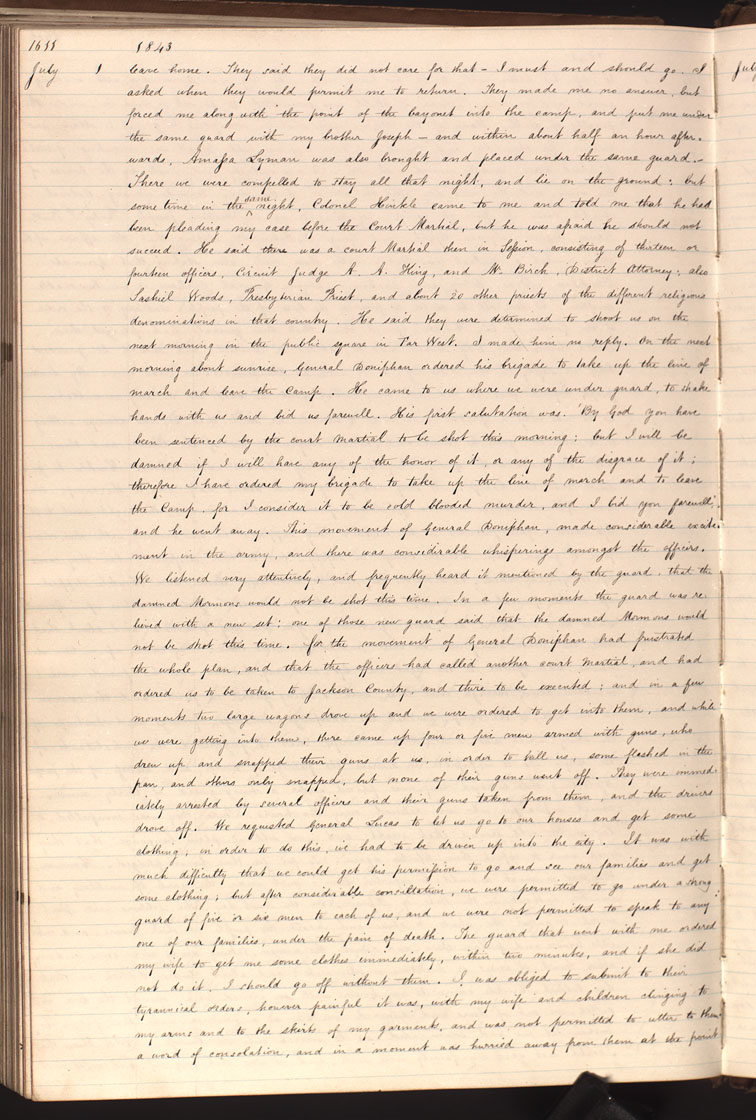 1611 1843
July 1 leave home. They said they did not care for that — I must and should go. I
asked when they would permit me to return. They made me no answer, but
forced me along with the point of the bayonet into the camp, and put me under
the same guard with my brother Joseph — and within about half an hour after-
wards, Amasa Lyman was also brought and placed under the same guard.—
There we were compelled to stay all that night, and lie on the ground: but
some time in the same night, Colonel Hinkle came to me and told me that he had
been pleading my case before the Court Martial, but he was afraid he should not
succeed. He said there was a court Martial then in Session, consisting of thirteen or
fourteen officers, Circuit Judge A. A. King, and Mr. Birch, District Attorney; also
Sashiel Woods, Presbyterian Priest, and about 20 other priests of the different religious
denominations in that country. He said they were determined to shoot us on the
next morning in the public square in Far West. I made him no reply. On the next
morning about sunrise, General Doniphan ordered his brigade to take up the line of
march and leave the Camp. He came to us where we were under guard, to shake
hands with us and bid us farewell. His first salutation was. "By God you have
been sentenced by the court martial to be shot this morning: but I will be
damned if I will have any of the honor of it, or any of the disgrace of it;
therefore I have ordered my brigade to take up the line of march and to leave
the Camp. for I consider it to be cold blooded murder, and I bid you farewell",
and he went away. This movement of General Doniphan, made considerable excite-
ment in the army, and there was considerable whisperings amongst the officers.
We listened very attentively, and frequently heard it mentioned by the guard, that the
damned Mormons would not be shot this time. In a few moments the guard was re-
lieved with a new set: one of those new guard said that the damned Mormons would
not be shot this time. for the movement of General Doniphan had frustrated
the whole plan, and that the officers had called another court Martial, and had
ordered us to be taken to Jackson County, and there to be executed: and in a few
moments two large wagons drove up and we were ordered to get into them, and while
we were getting into them, there came up four or five men armed with guns, who
drew up and snapped their guns at us, in order to kill us, some flashed in the
pan, and others only snapped, but none of their guns went off. They were immed-
iately arrested by several officers and their guns taken from them, and the drivers
drove off. We requested General Lucas to let us go to our houses and get some
clothing; in order to do this, we had to be driven up into the city. It was with
much difficulty that we could get his permission to go and see our families and get
some clothing; but after considerable consultation, we were permitted to go under a strong
guard of five or six men to each of us, and we were not permitted to speak to any
one of our families, under the pain of death. The guard that went with me ordered
my wife to get me some clothes immediately, within two minutes, and if she did
not do it, I should go off without them. I was obliged to submit to their
tyrannical orders, however painful it was, with my wife and children clinging to
my arms and to the skirts of my garments, and was not permitted to utter to them
a word of consolation, and in a moment was hurried away from them at the point
July